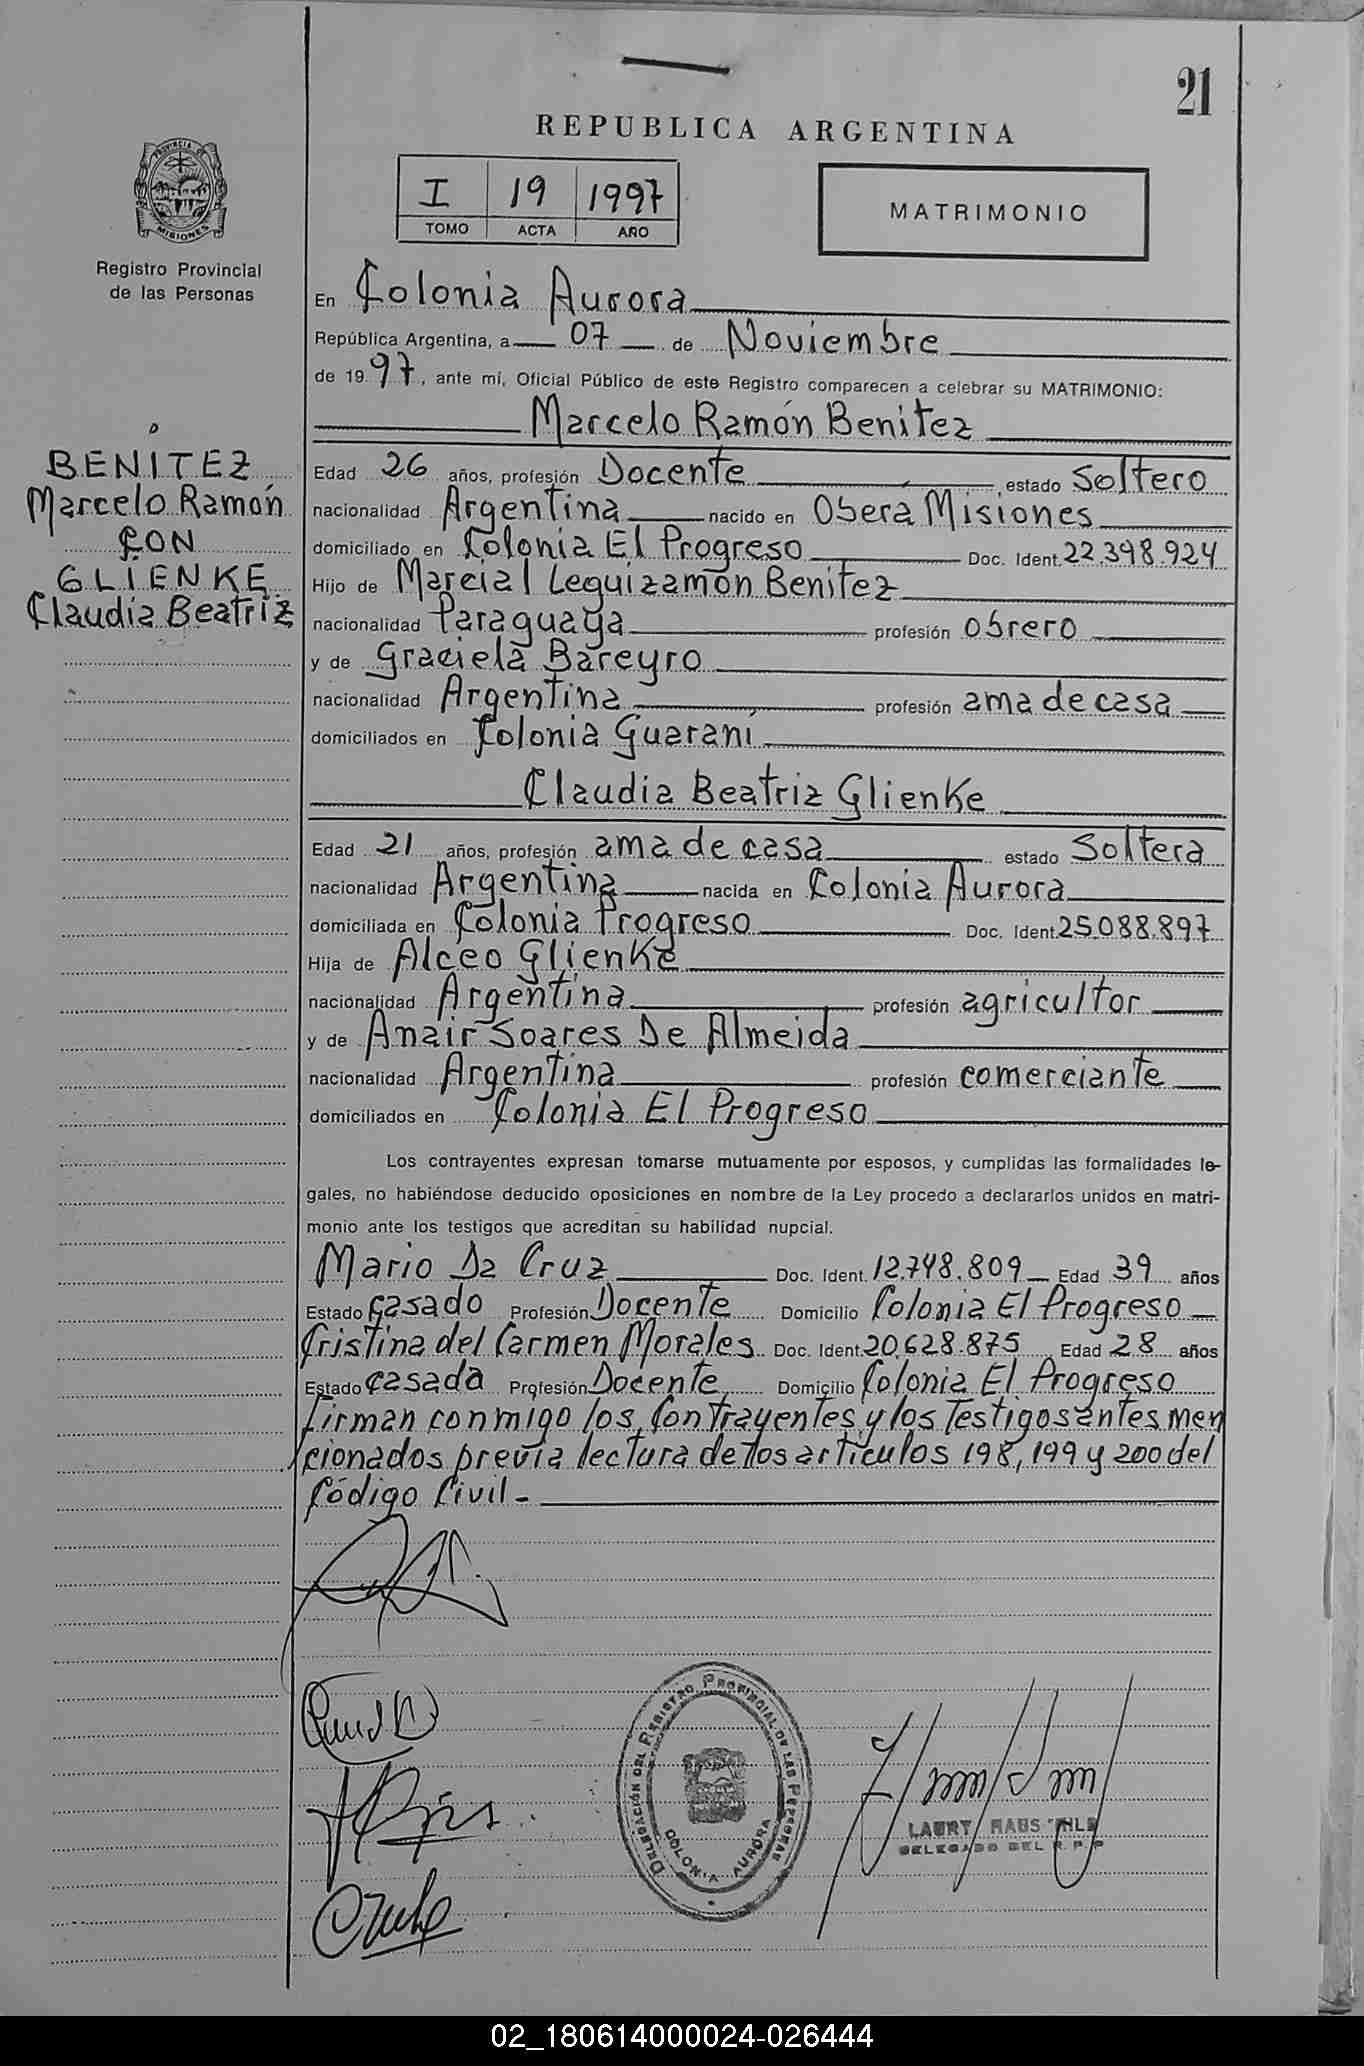 21
REPUBLICA ARGENTINA
PROVINCIA DE
MISIONES
Registro Provincial
de las Personas
I 19 1997
TOMO ACTA AÑO
MATRIMONIO
En Colonia Aurora
República Argentina, a 07 de Noviembre
de 1997, ante mí, Oficial Público de este Registro comparecen a celebrar su MATRIMONIO:
Marcelo Ramón Benitez
BENÍTEZ
Marcelo Ramón
CON
GLIENKE
Claudia Beatriz
Edad 26 años, profesión Docente estado Soltero
nacionalidad Argentina nacido en Obera Misiones
domiciliado en Colonia El Progreso Doc. Ident. 22.398.924
Hijo de Marcial Leguizamón Benitez
nacionalidad Paraguaya profesión obrero
y de Graciela Bareyro
nacionalidad Argentina profesión ama de casa
domiciliados en Colonia Guaraní
Claudia Beatriz Glienke
Edad 21 años, profesión ama de casa estado Soltera
nacionalidad Argentina nacida en Colonia Aurora
domiciliada en Colonia Progreso Doc. Ident. 25.088.897
Hija de Alceo Glienke
nacionalidad Argentina profesión agricultor
y de Anair Soares De Almeida
nacionalidad Argentina profesión comerciante
domiciliados en Colonia El Progreso
Los contrayentes expresan tomarse mutuamente por esposos, y cumplidas las formalidades le-
gales, no habiéndose deducido oposiciones en nombre de la Ley procedo a declararlos unidos en matri-
monio ante los testigos que acreditan su habilidad nupcial.
Mario Da Cruz Doc. Ident. 12.748.809 Edad 39 años
Estado Casado Profesión Docente Domicilio Colonia El Progreso
Cristina del Carmen Morales Doc. Ident. 20.628.875 Edad 28 años
Estado Casada Profesión Docente Domicilio Colonia El Progreso
Firman conmigo los Contrayentes y los Testigos antes men
cionados previa lectura de los artículos 198, 199 y 200 del
Código Civil-
DELEGACIÓN DEL REGISTRO PROVINCIAL DE LAS PERSONAS
COLONIA AURORA
LAURY
DELEGADO DEL R.P.P
02_180614000024-026444